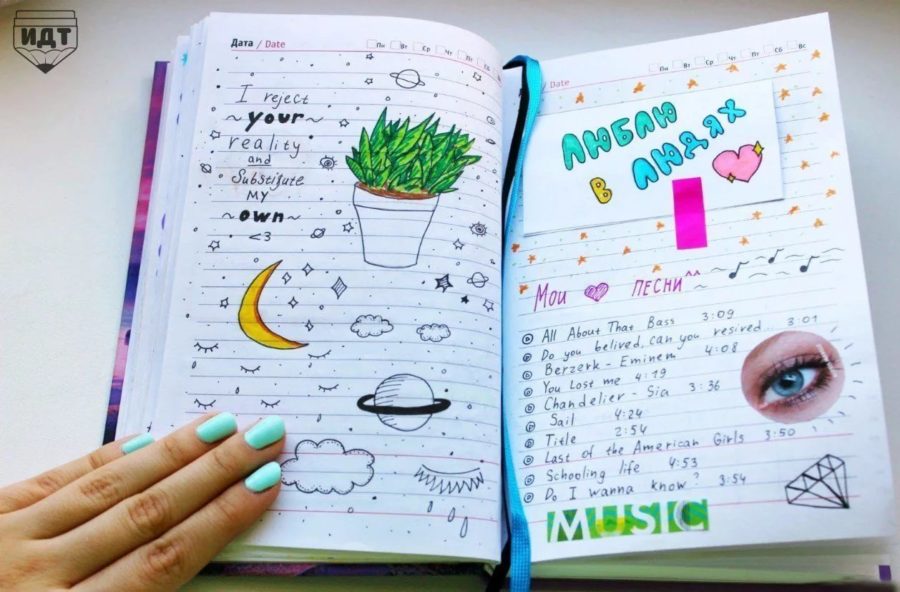 ИДТ
Дата / Date
Пн Вт Ср Чт Пт Сб Вс
I reject
~your~
reality
and
Substitute
MY
~own~
<3
Date
Пн Вт Ср Чт Пт Сб Вс
ЛЮБЛЮ
В ЛЮДЯХ
Мои песни^^
All About That Bass 3:09
Do you belived, can you resired.. 3:01
Berzerk - Eminem 4:08
You Lost me 4:19
Chandelier - Sia 3:36
Sail 4:24
Title 2:54
Last of the American Girls 3:50
Schooling life 4:53
Do I wanna know? 3:54
MUSIC